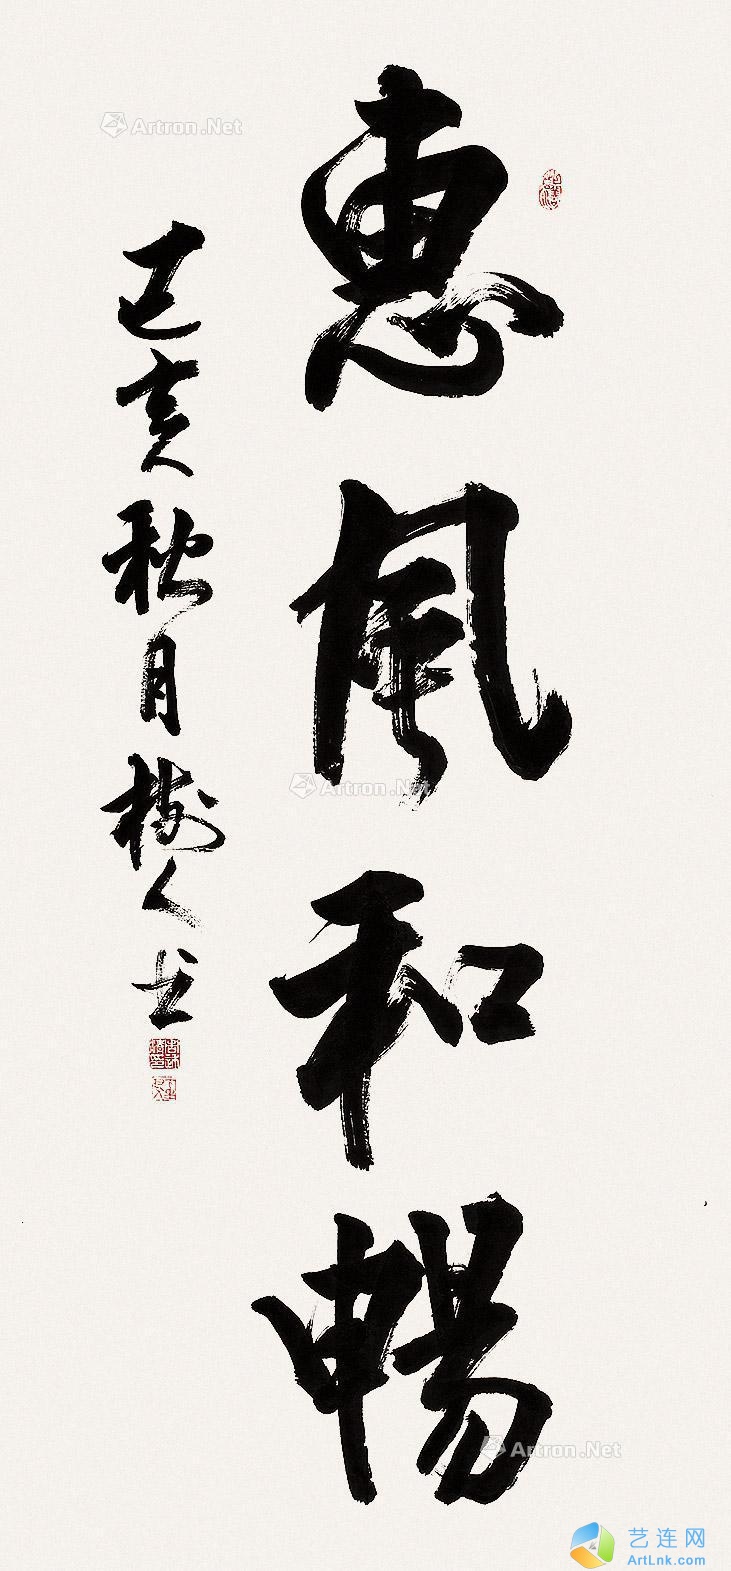 惠風和暢
己亥秋月樹人书
Artron.Net
Artron.Net
Artron.Net
艺连网
ArtLnk.com